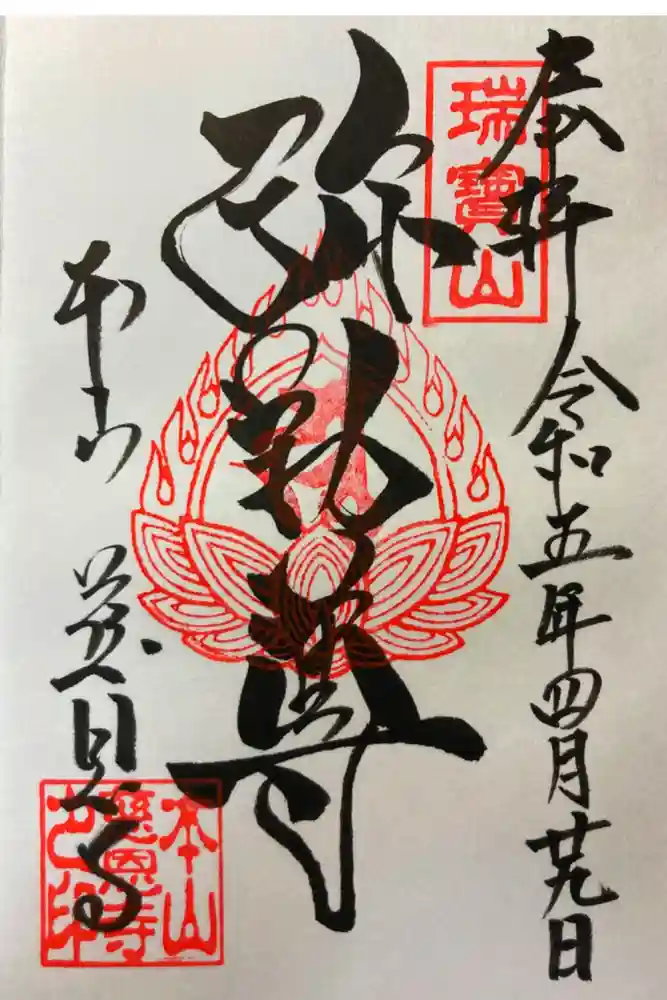 奉拝 令和五年四月廿九日
瑞寳山
弥勒尊
本山 慈恩寺
本山
慈恩寺
之印